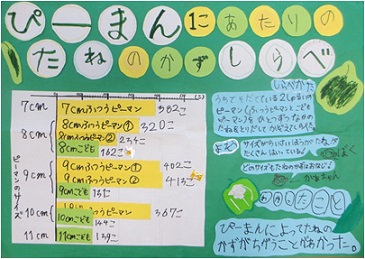 ぴーまん1こあたりの
たねのかずしらべ
7cm
7cmふつうピーマン
8cm
8cmふつうピーマン①
320こ
8cmふつうピーマン②
234こ
8cmこども
162こ
ピーマンのサイズ
9cm
9cmふつうピーマン①
402こ
9cmふつうピーマン②
9cmこども
10cm
10cmふつうピーマン
367こ
10cmこども
11cm
11cmこども
しらべかた
うちでそだてている2しゅるいの
ピーマン(ふつうピーマンとこども
ピーマン)を
たねをとりだしてかぞえてみる。
よそう
サイズが
たくさんはいっている。
ぼく
どのサイズもたねのかずはおなじ。
わかったこと
ぴーまんによってたねの
かずがちがうことがわかった。